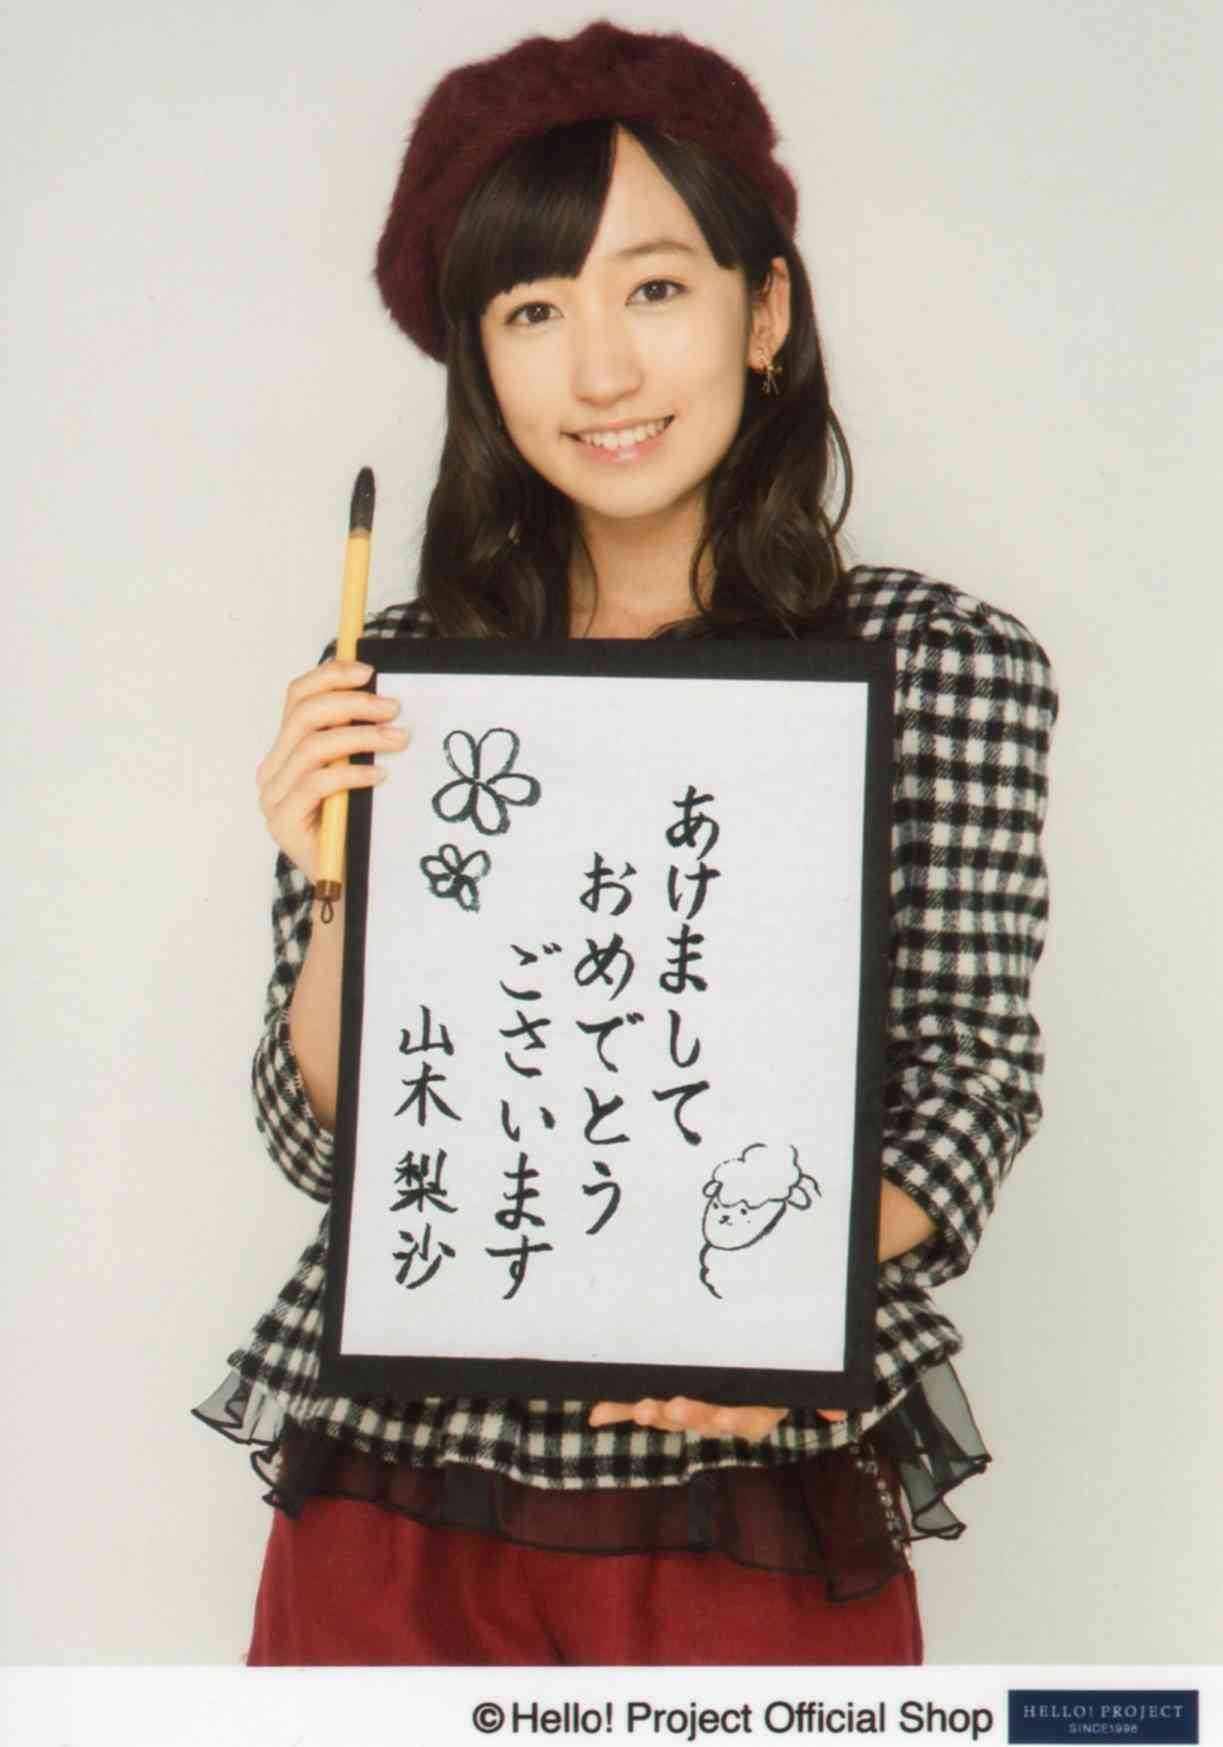 あけまして
おめでとう
ごさいます
山木梨沙
©Hello! Project Official Shop
HELLO! PROJECT
SINCE1998